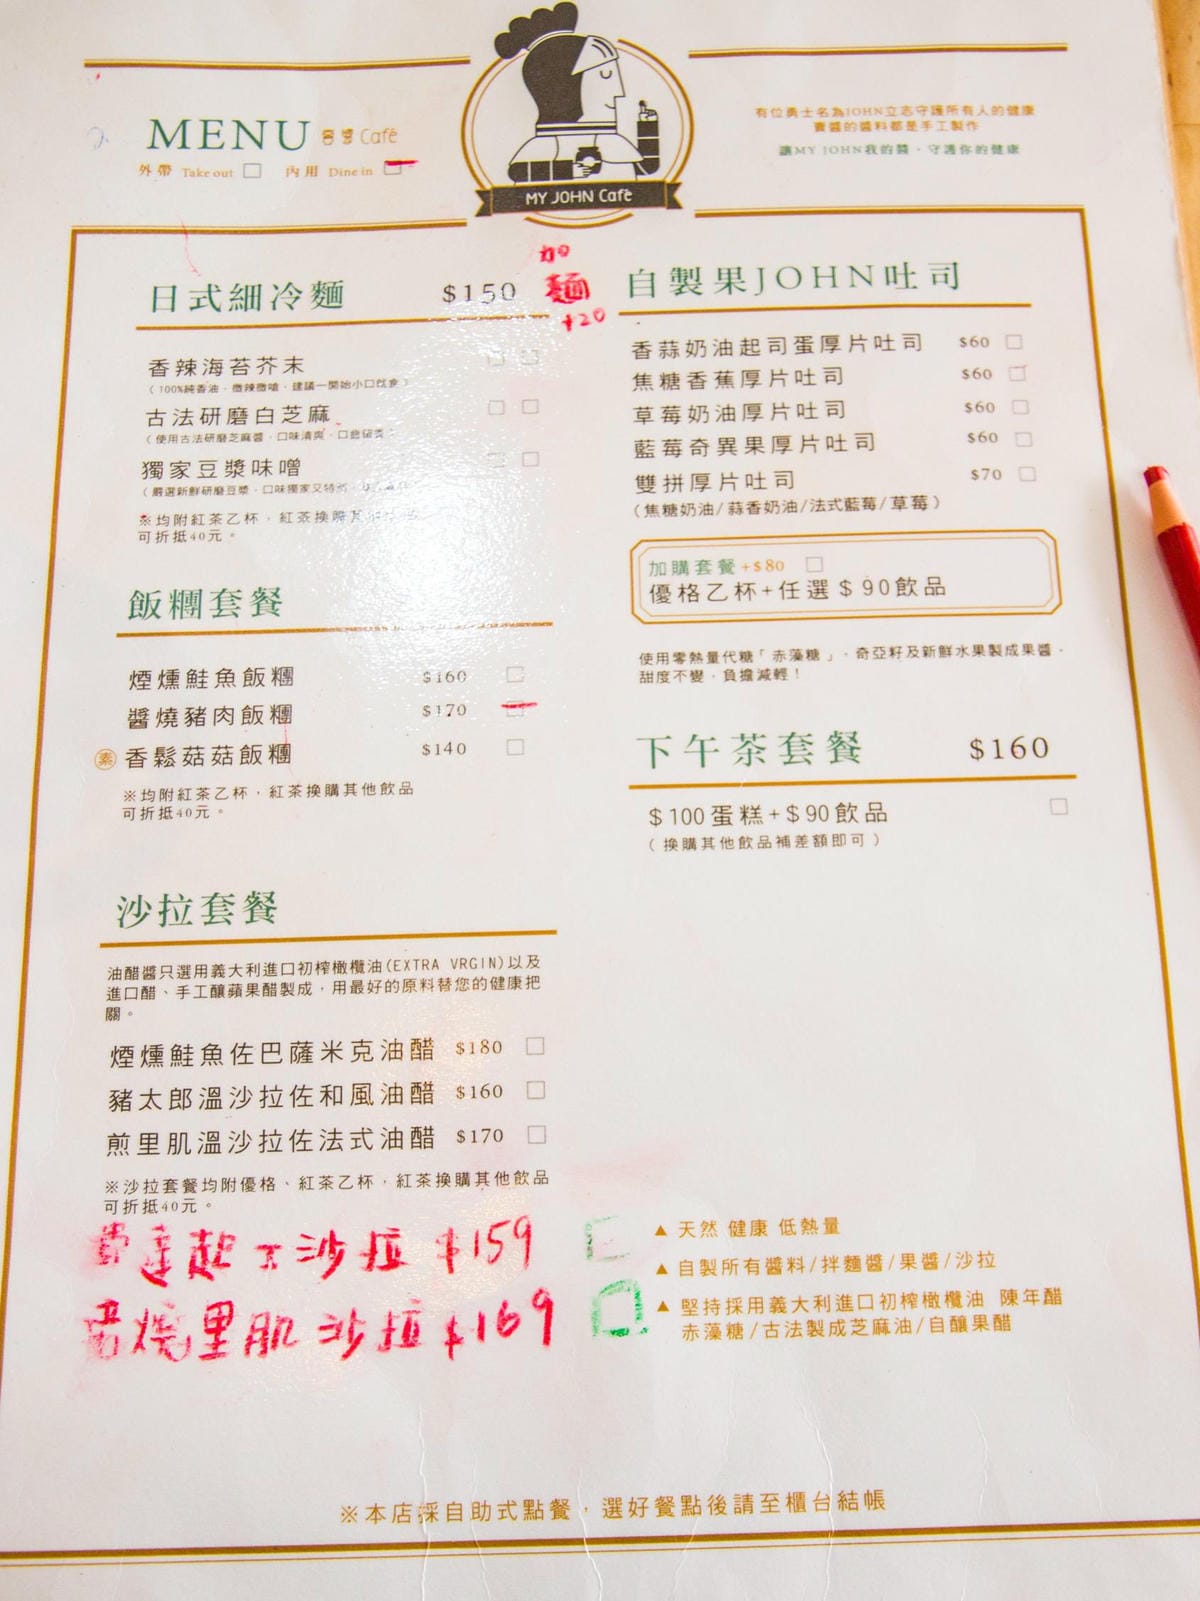 MENU 醬 Café
外帶 Take out □ 內用 Dine in □
MY JOHN Café
有位勇士名為JOHN立志守護所有人的健康
賣醬的醬料都是手工製作
讓MY JOHN我的醬,守護你的健康
日式細冷麵 $150
加
麵
+20
香辣海苔芥末 □ □
(100%純香油,微辣微嗆,建議一開始小口試食)
古法研磨白芝麻 □ □
(使用古法研磨芝麻醬,口味清爽,口齒留香)
獨家豆漿味噌 □ □
(嚴選新鮮研磨豆漿,口味獨家又特別
※均附紅茶乙杯,紅茶換購其他飲品
可折抵40元。
飯糰套餐
煙燻鮭魚飯糰 $160 □
醬燒豬肉飯糰 $170 □
素 香鬆菇菇飯糰 $140 □
※均附紅茶乙杯,紅茶換購其他飲品
可折抵40元。
沙拉套餐
油醋醬只選用義大利進口初榨橄欖油(EXTRA VRGIN)以及
進口醋、手工釀蘋果醋製成,用最好的原料替您的健康把
關。
煙燻鮭魚佐巴薩米克油醋 $180 □
豬太郎溫沙拉佐和風油醋 $160 □
煎里肌溫沙拉佐法式油醋 $170 □
※沙拉套餐均附優格、紅茶乙杯,紅茶換購其他飲品
可折抵40元。
起士沙拉 $159
燒里肌沙拉 $169
自製果JOHN吐司
香蒜奶油起司蛋厚片吐司 $60 □
焦糖香蕉厚片吐司 $60 □
草莓奶油厚片吐司 $60 □
藍莓奇異果厚片吐司 $60 □
雙拼厚片吐司 $70 □
(焦糖奶油/蒜香奶油/法式藍莓/草莓)
加購套餐+$80 □
優格乙杯+任選$90飲品
使用零熱量代糖「赤藻糖」,奇亞籽及新鮮水果製成果醬,
甜度不變,負擔減輕!
下午茶套餐 $160
$100蛋糕+$90飲品 □
(換購其他飲品補差額即可)
▲ 天然 健康 低熱量
▲ 自製所有醬料/拌麵醬/果醬/沙拉
▲ 堅持採用義大利進口初榨橄欖油 陳年醋
赤藻糖/古法製成芝麻油/自釀果醋
※本店採自助式點餐,選好餐點後請至櫃台結帳